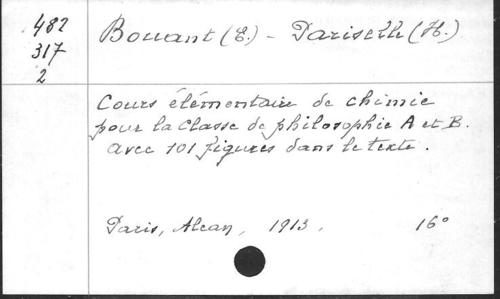 482
317
2
Bouant (E.) - Pariselle (H.)
Cours élémentaire de chimie
pour la Classe de philosophie A et B.
avec 101 figures dans le texte.
Paris, Alcan, 1913, 16°